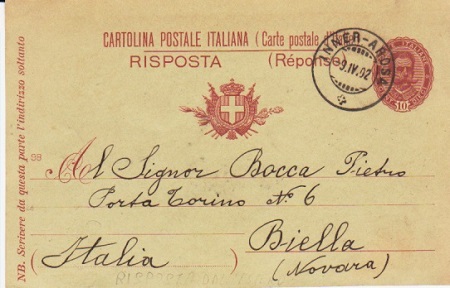 CARTOLINA POSTALE ITALIANA (Carte postale d'
RISPOSTA (Réponse)
INNER-AROSA
9.IV.02
10
NB. Scrivere da questa parte l'indirizzo soltanto
98
Al Signor Bocca Pietro
Porta Torino No 6
(Italia) Biella
(Novara)